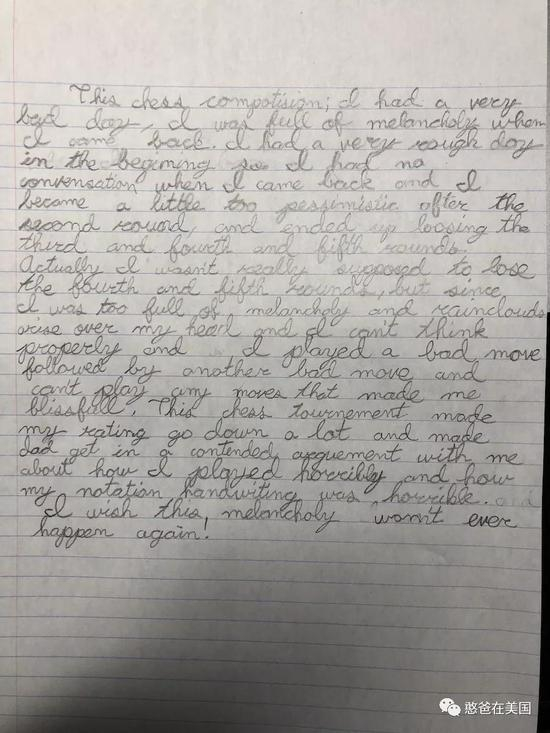 This chess compotision; I had a very
bad day, I was full of melancholy when
I came back. I had a very rough day
in the begining so I had no
convensation when I came back and I
became a little too pessimistic after the
second round, and ended up loosing the
third and fourth and fifth rounds.
Actually I wasn't really supposed to lose
the fourth and fifth rounds, but since
I was too full of melancholy and rainclouds
arise over my head and I can't think
properly and I played a bad move
followed by another bad move and
can't play any moves that made me
blissfull. This chess tournement made
my rating go down a lot and made
dad get in a contended arguement with me
about how I played horribly and how
my notation handwriting was horrible.
I wish this melancholy won't ever
happen again!
憨爸在美国